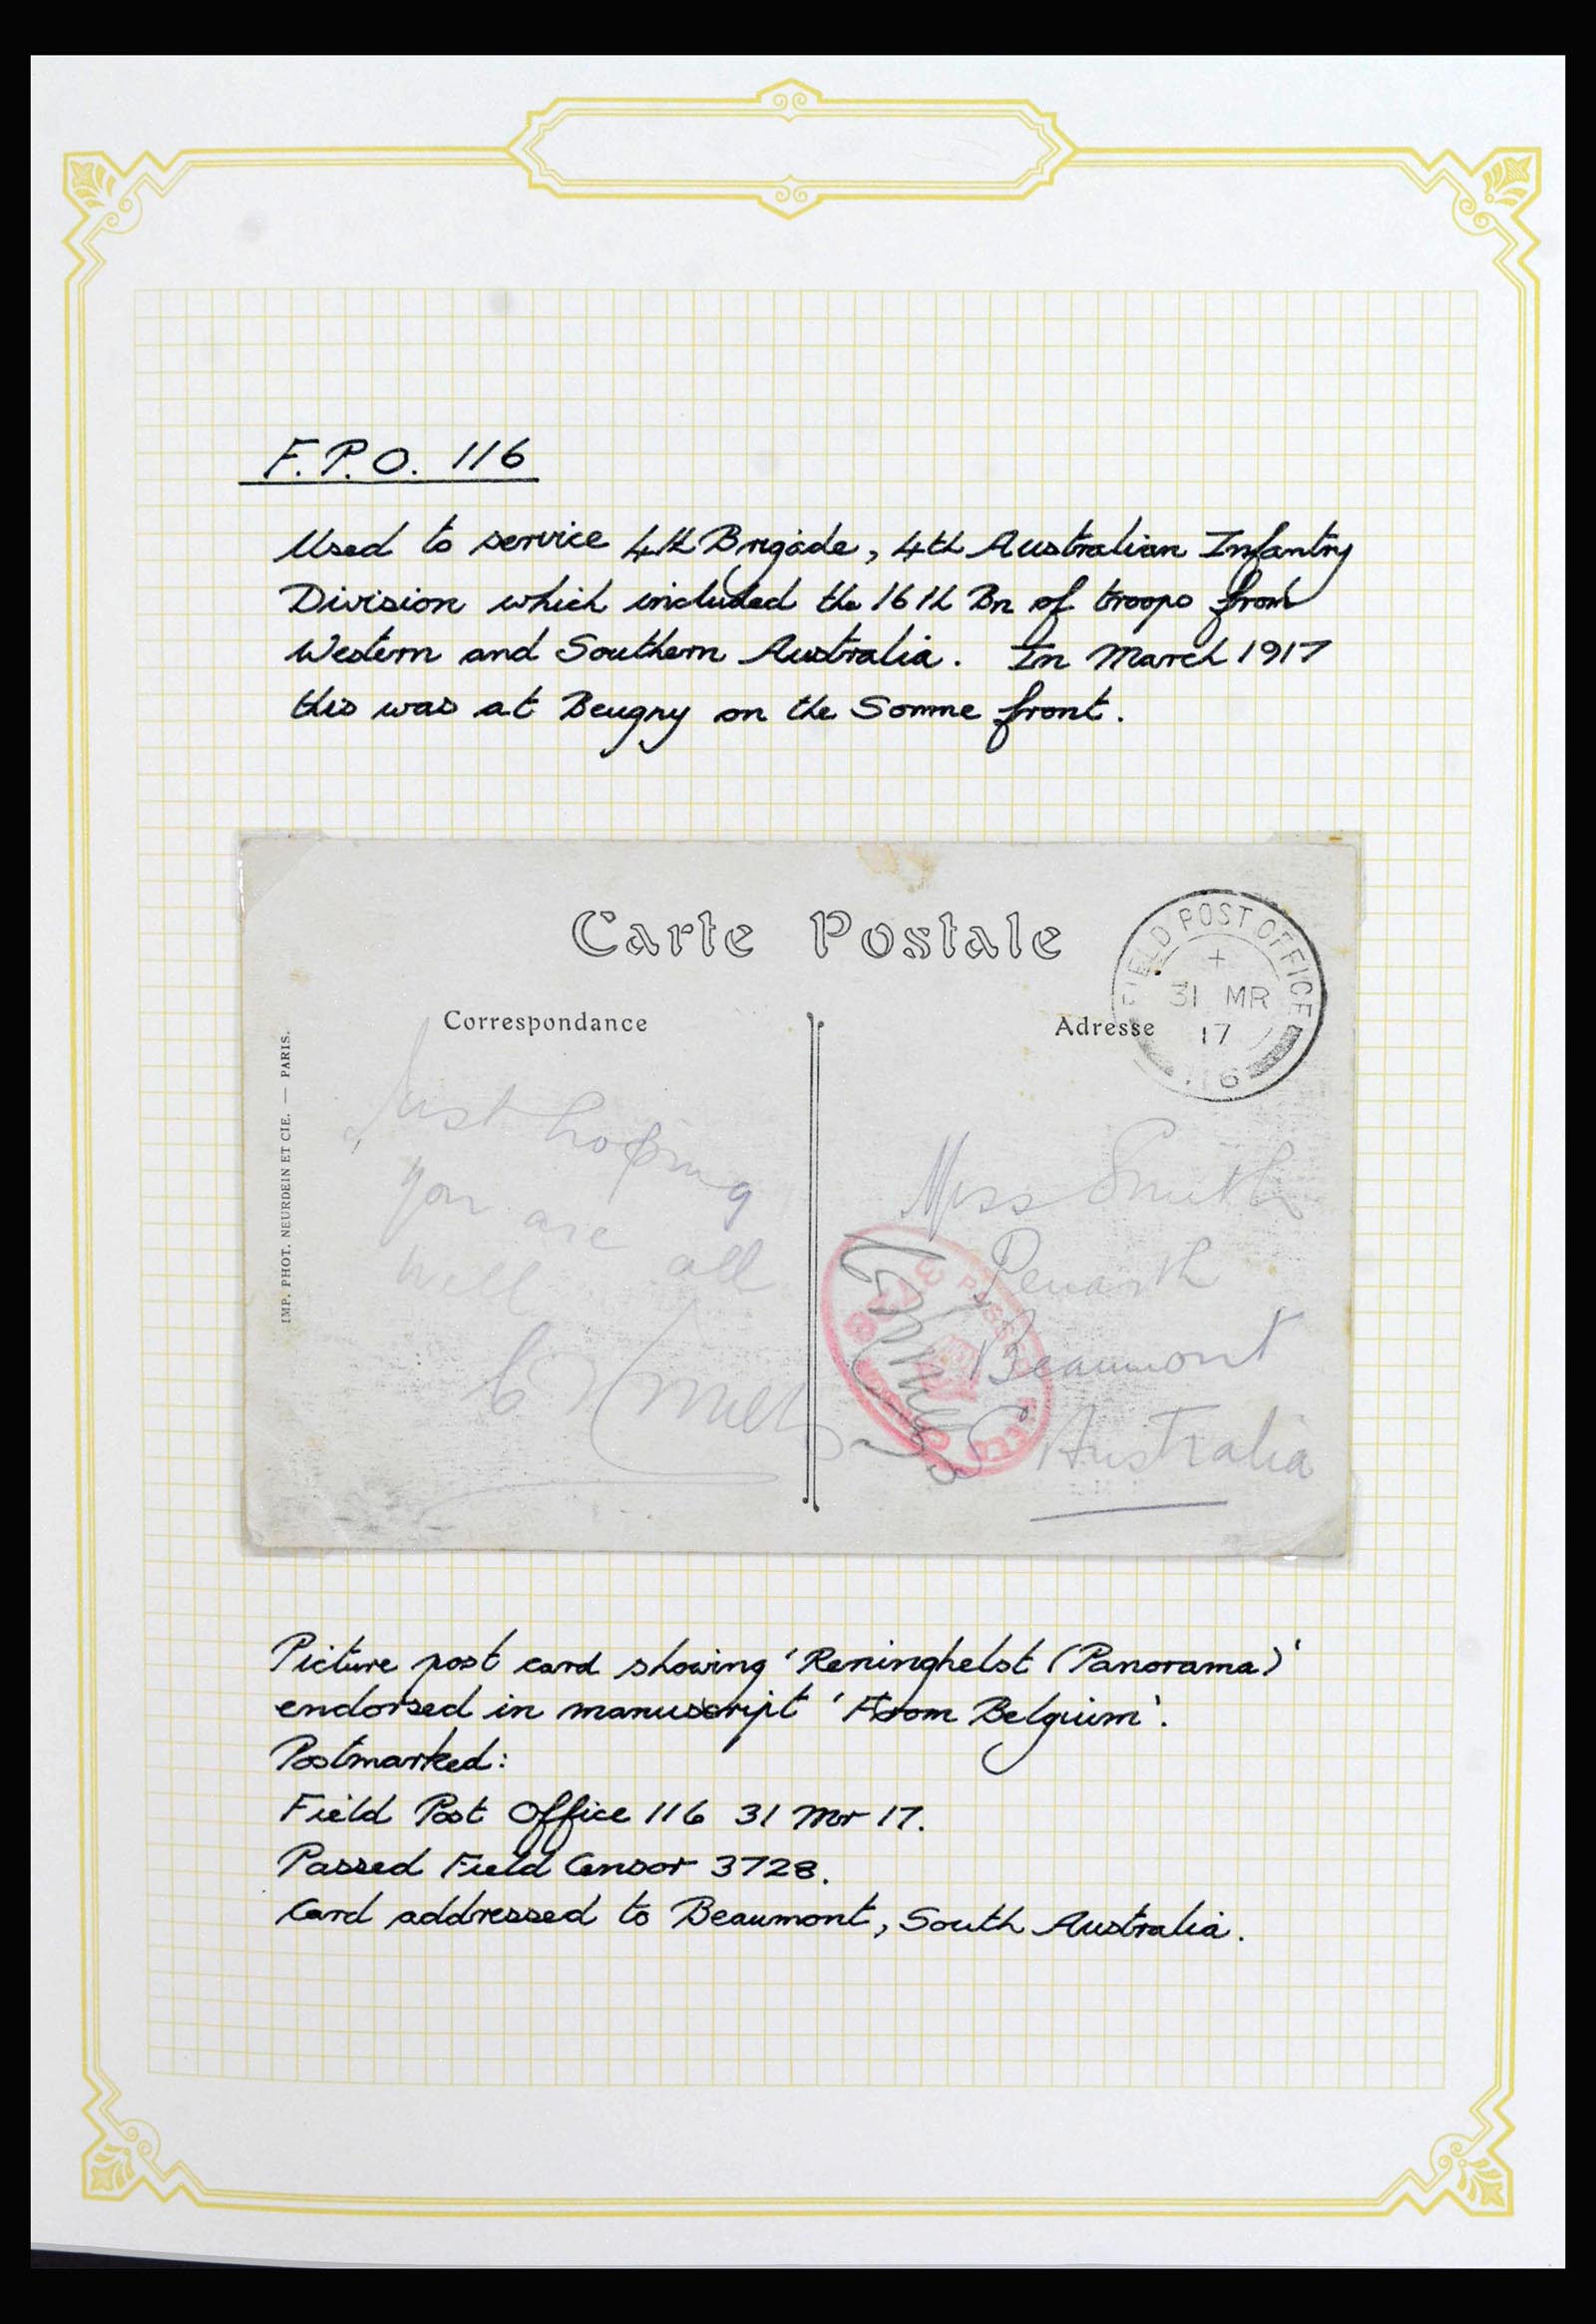 F.P.O. 116
Used to service 4th Brigade, 4th Australian Infantry
Division which included the 16th Bn of troops from
Western and Southern Australia. In March 1917
this was at Beugny on the Somme front.
Carte Postale
FIELD POST OFFICE
+
31 MR
17
116
Correspondance
Adresse
IMP. PHOT. NEURDEIN ET CIE. — PARIS.
Just hoping
you are all
well
Miss Smith
Penarth
Beaumont
S Australia
Picture post card showing 'Reninghelst (Panorama)'
endorsed in manuscript 'From Belguim'.
Postmarked:
Field Post Office 116 31 Mr 17.
Passed Field Censor 3728.
Card addressed to Beaumont, South Australia.